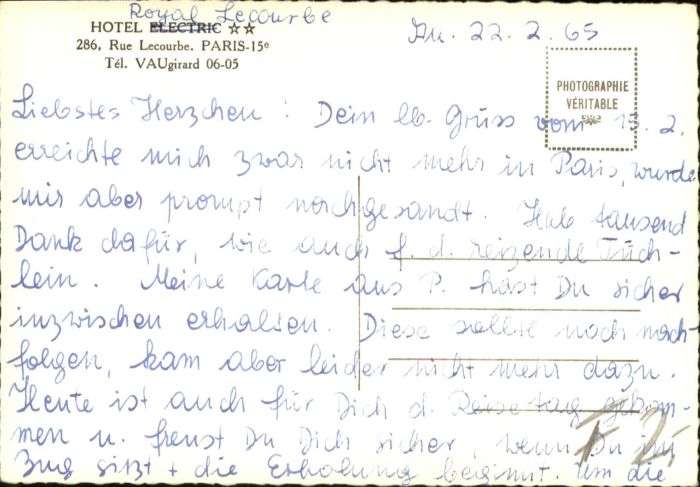 Royal Lecourbe
HOTEL ELECTRIC ☆☆
286, Rue Lecourbe. PARIS-15e
Tél. VAUgirard 06-05
22. 2. 65
PHOTOGRAPHIE
VÉRITABLE
Liebstes Herzchen! Dein lb. Gruss vom 15. 2.
erreichte mich zwar nicht mehr in Paris, wurde
mir aber prompt nachgesandt. Hab tausend
Dank dafür, wie auch f. d. reizende Tüch-
lein. Meine Karte aus P. hast Du sicher
inzwischen erhalten. Diese sollte noch nach-
folgen, kam aber leider nicht mehr dazu.
Heute ist auch für Dich d. Reisetag gekom-
men u. freust Du Dich sicher, wenn Du im
Zug sitzt + die Erholung beginnt. Um die